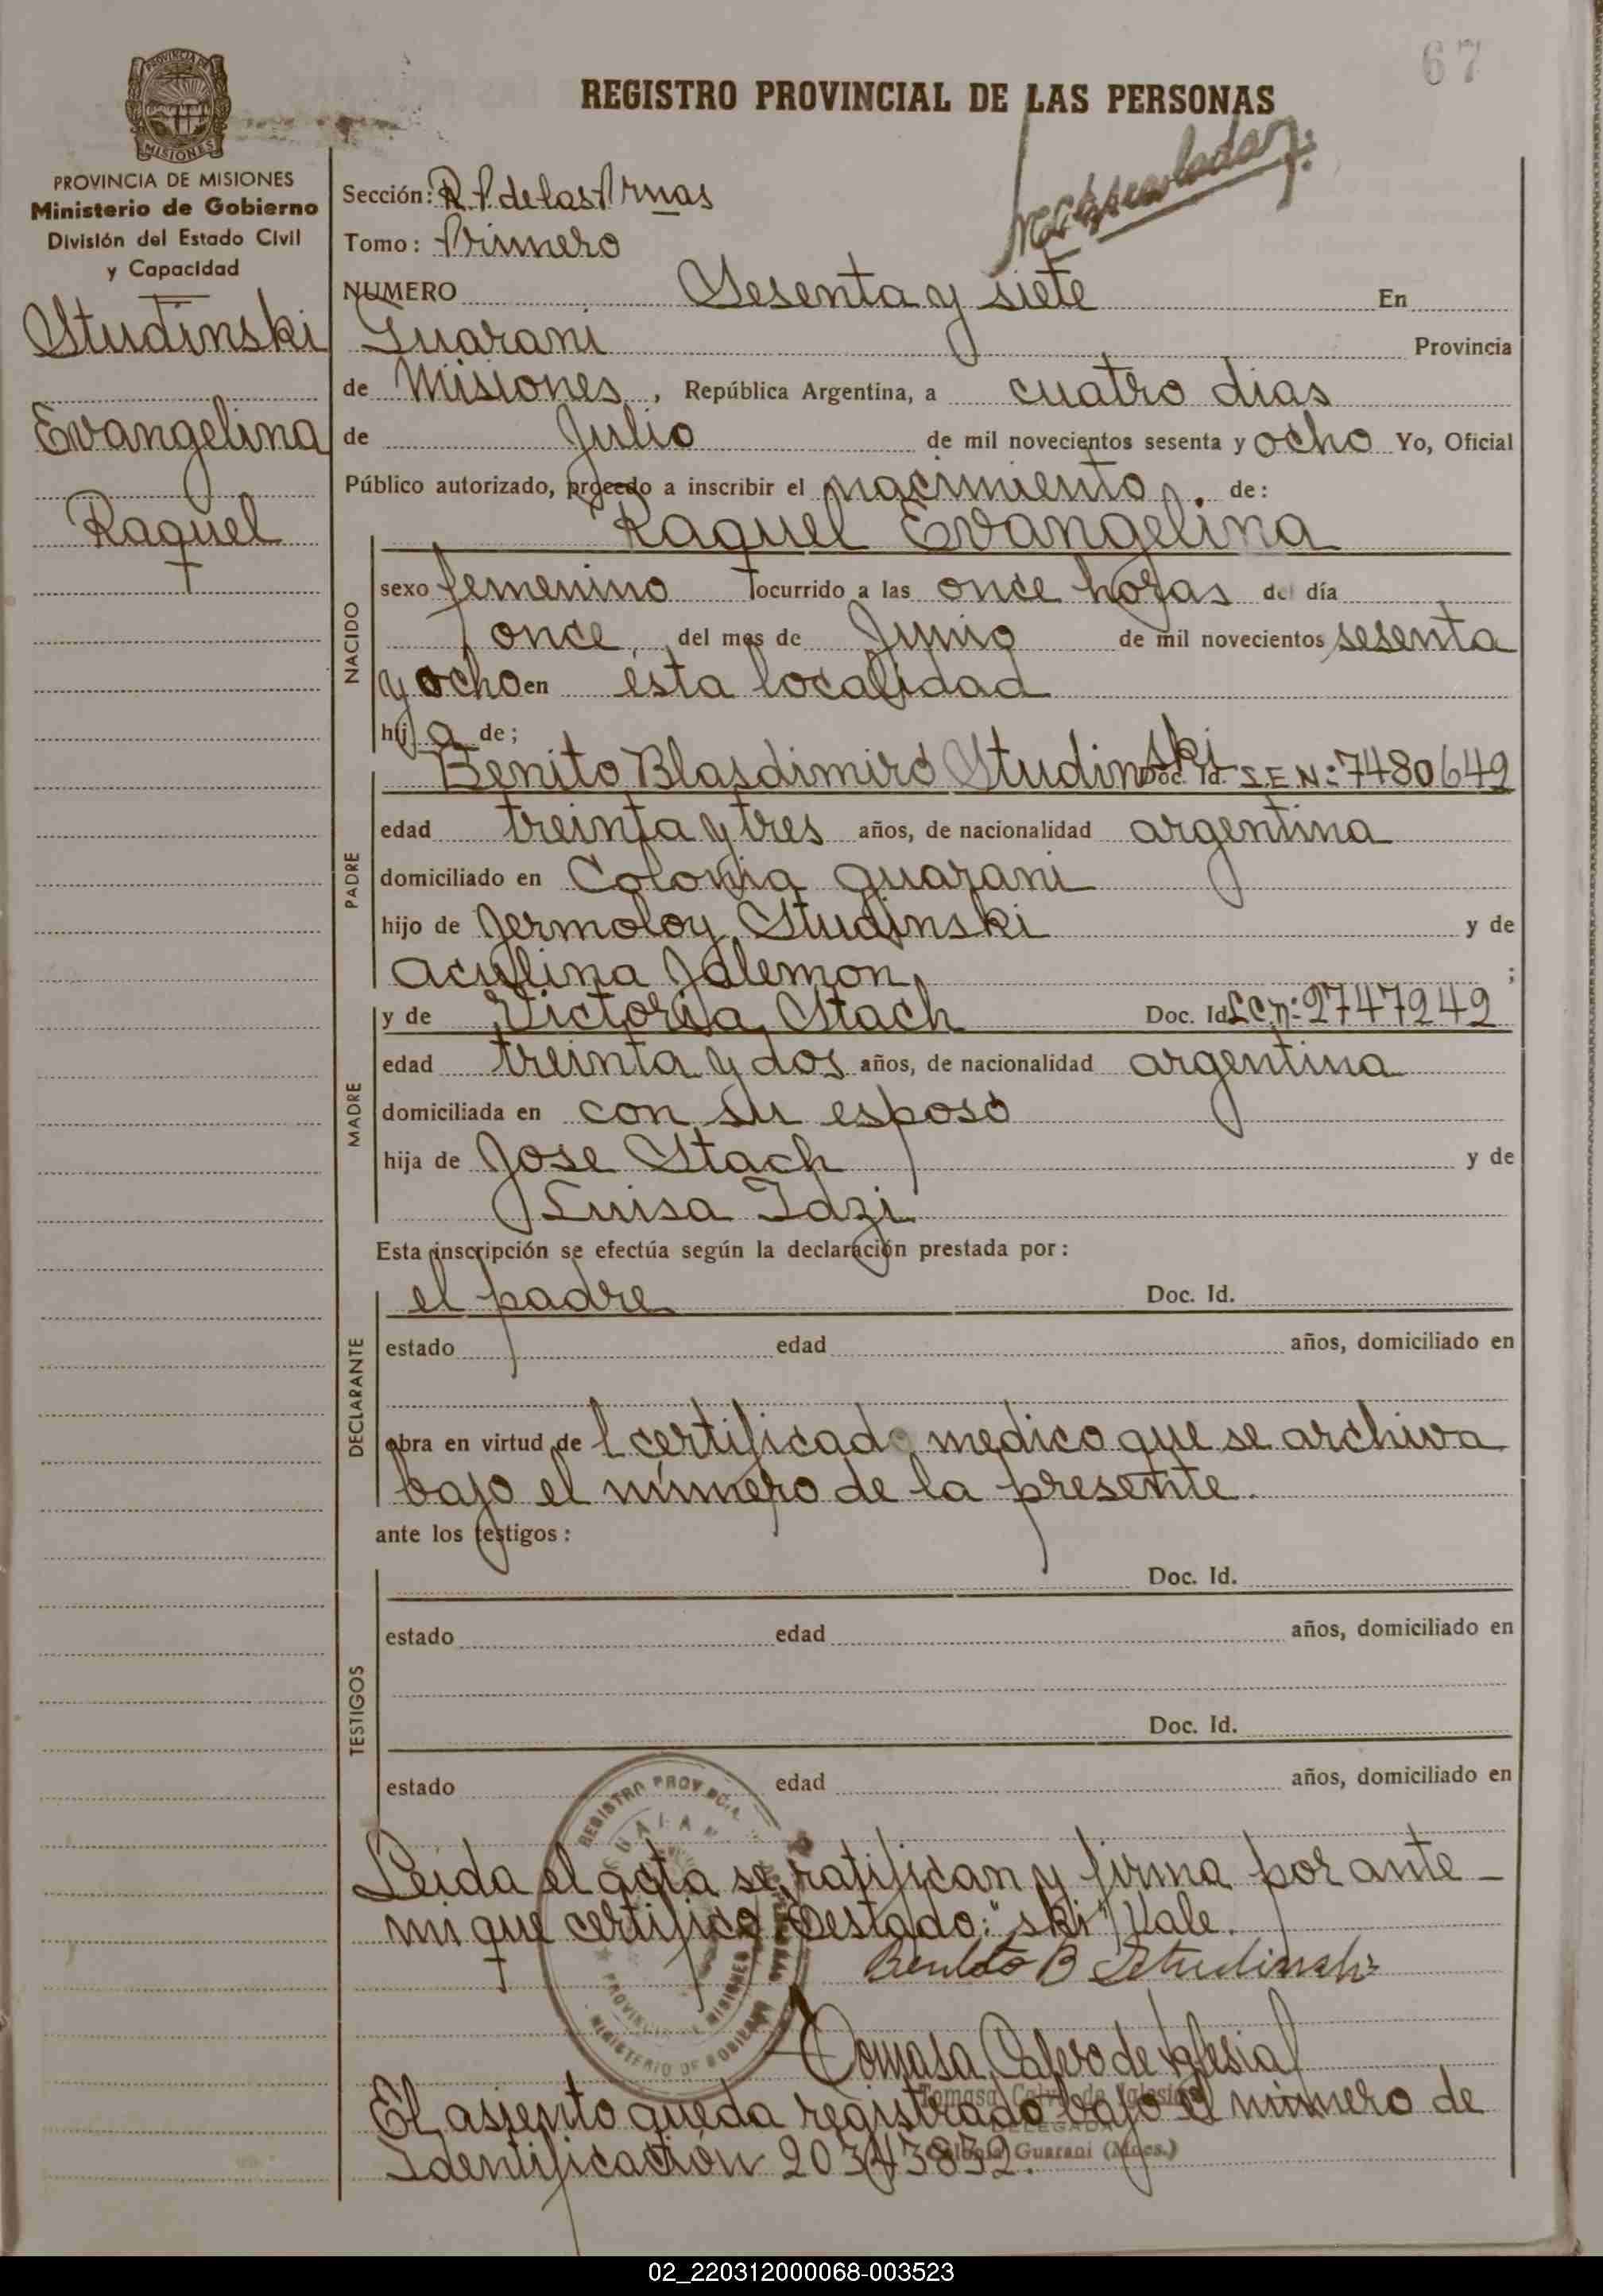 67
REGISTRO PROVINCIAL DE LAS PERSONAS
PROVINCIA DE MISIONES
Ministerio de Gobierno
División del Estado Civil
y Capacidad
Studinski
Evangelina
Raquel
Sección: R. P. de las Prnas
Tomo: Primero
NUMERO Sesenta y siete En
Guarani Provincia
de Misiones, República Argentina, a cuatro dias
de Julio de mil novecientos sesenta y ocho Yo, Oficial
Público autorizado, procedo a inscribir el nacimiento. de:
Raquel Evangelina
NACIDO
sexo femenino ocurrido a las once horas del día
once del mes de Junio de mil novecientos sesenta
y ocho en esta localidad
hij a de;
PADRE
Benito Blasdimiro Studinski Doc. Id. S.E.N: 7480649
edad treinta y tres años, de nacionalidad argentina
domiciliado en Colonia guarani
hijo de Jermoloy Studinski y de
Aculina Jalemon;
MADRE
y de Victoria Stach Doc. Id L C n: 2747249
edad treinta y dos años, de nacionalidad argentina
domiciliada en con su esposo
hija de Jose Stach y de
Luisa Idzi
Esta inscripción se efectúa según la declaración prestada por:
DECLARANTE
el padre Doc. Id.
estado edad años, domiciliado en
obra en virtud de l certificado medico que se archiva
bajo el número de la presente.
ante los testigos:
TESTIGOS
Doc. Id.
estado edad años, domiciliado en
Doc. Id.
estado edad años, domiciliado en
Leida el acta se ratifican y firma por ante
mi que certifico Testado: "ski" Vale.
Benito B Studinski
REGISTRO PROVINCIAL
PROVINCIA DE MISIONES
MINISTERIO DE GOBIERNO
Tomasa Calvo de Iglesias
Tomasa Calvo de Iglesias
DELEGADA
Colonia Guaraní (Mnes.)
El asiento queda registrado bajo el número de
Identificación 20343832.
02_220312000068-003523